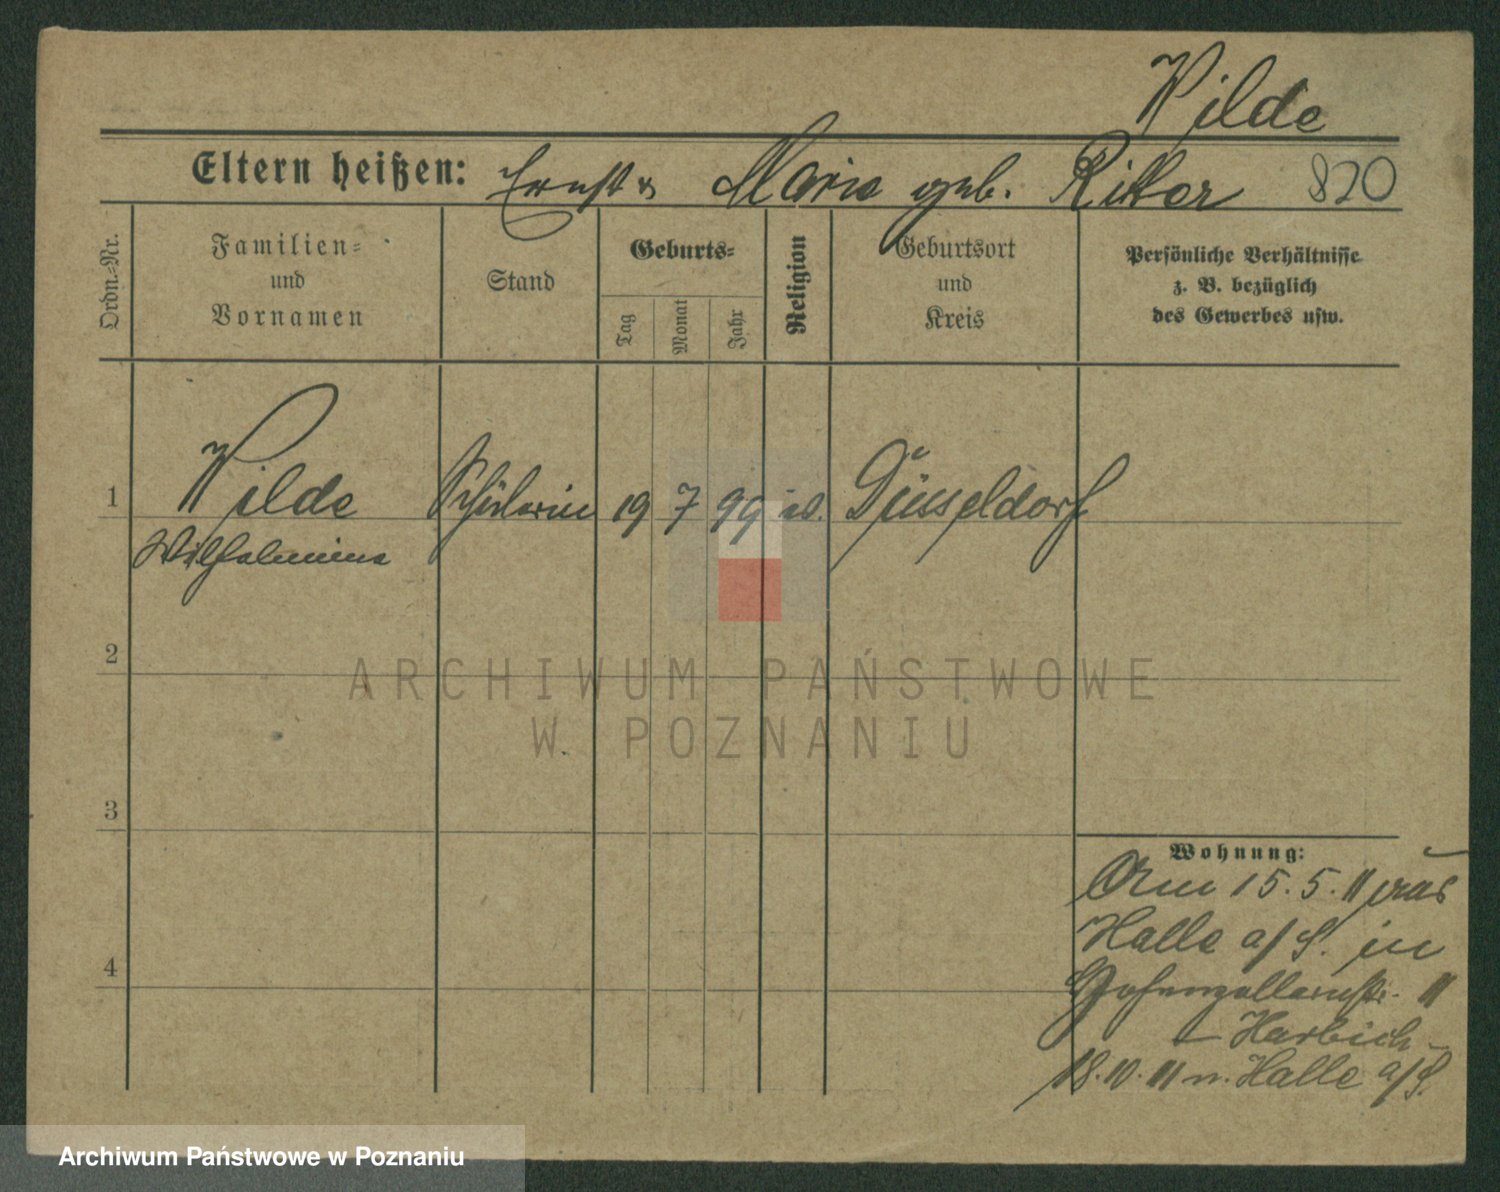 Wilde
Eltern heißen: Ernst u Maria geb. Ritter 820
Ordn.-Nr.
Familien-
und
Vornamen
Stand
Geburts-
Tag
Monat
Jahr
Religion
Geburtsort
und
Kreis
Persönliche Verhältnisse
z. B. bezüglich
des Gewerbes usw.
1 Wilde Schülerin 19 7 99 Düsseldorf
Wilhelmine
2
3
4
Wohnung:
Am 15. 5. 11 aus
Halle a/S. in
Hohenzollernstr. 11
– Harbich –
18. 10. 11 n. Halle a/S.
ARCHIWUM PAŃSTWOWE
W POZNANIU
Archiwum Państwowe w Poznaniu